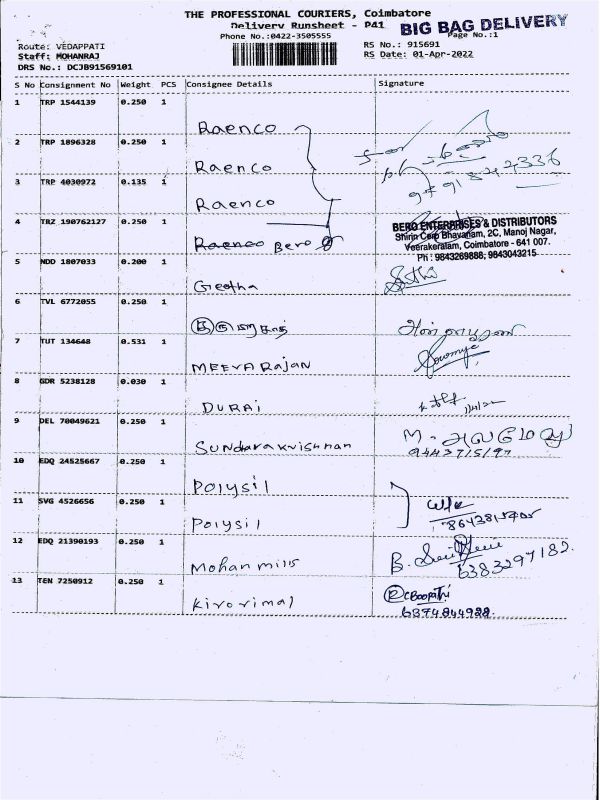 THE PROFESSIONAL COURIERS, Coimbatore
Delivery Runsheet - P41
BIG BAG DELIVERY
Phone No.:0422-3505555
Page No.:1
Route: VEDAPPATI
RS No.: 915691
Staff: MOHANRAJ
RS Date: 01-Apr-2022
DRS No.: DCJB91569101
S No Consignment No Weight PCS Consignee Details Signature
1 TRP 1544139 0.250 1
Raenco
2 TRP 1896328 0.250 1
Raenco
3 TRP 4030972 0.135 1
Raenco
4 TRZ 190762127 0.250 1
Raenco Bero
BERO ENTERPRISES & DISTRIBUTORS
Shirin Bhavanam, 2C, Manoj Nagar,
Veerakeralam, Coimbatore - 641 007.
Ph : 9843269888, 9843043215
5 NDD 1807033 0.200 1
Geetha
6 TVL 6772055 0.250 1
7 TUT 134648 0.531 1
MEEVA Rajan Sowmya
8 GDR 5238128 0.030 1
DURAI
9 DEL 70049621 0.250 1
Sundarakrishnan M.
10 EDQ 24525667 0.250 1
Polysil
11 SVG 4526656 0.250 1
Polysil
12 EDQ 21390193 0.250 1
Mohan mills B.
6383297182.
13 TEN 7250912 0.250 1
kirorimal
CBoopathi
6374844928.